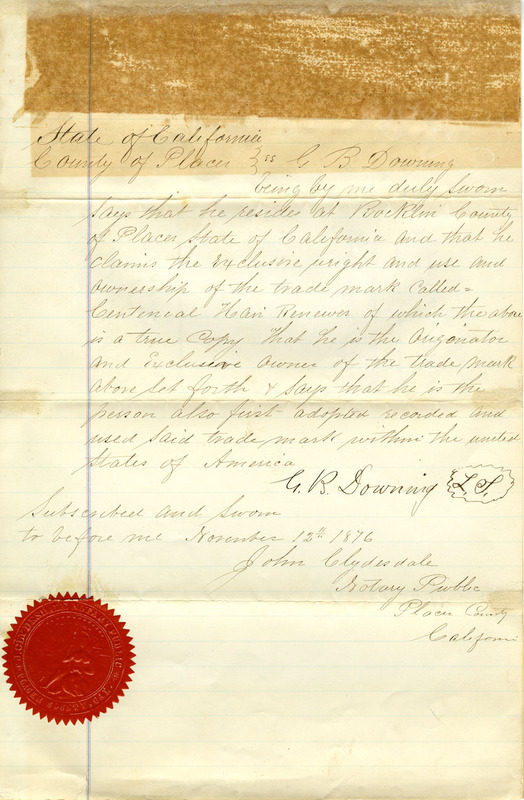 State of California
County of Placer } ss G B Downing
being by me duly sworn
says that he resides at Rocklin County
of Placer State of California and that he
claims the Exclusive wright and use and
ownership of the trade mark Called=
Centenial Hair Renewer of which the above
is a true Copy That he is the Originator
and Exclusive Owner of the trade mark
above Set forth & Says that he is the
person also first adopted recorded and
used Said trade mark within the united
States of America
G. B. Downing L. S.
Subscribed and Sworn
to before me November 12th 1876
John Clydesdale
Notary Public
Placer County
Californi